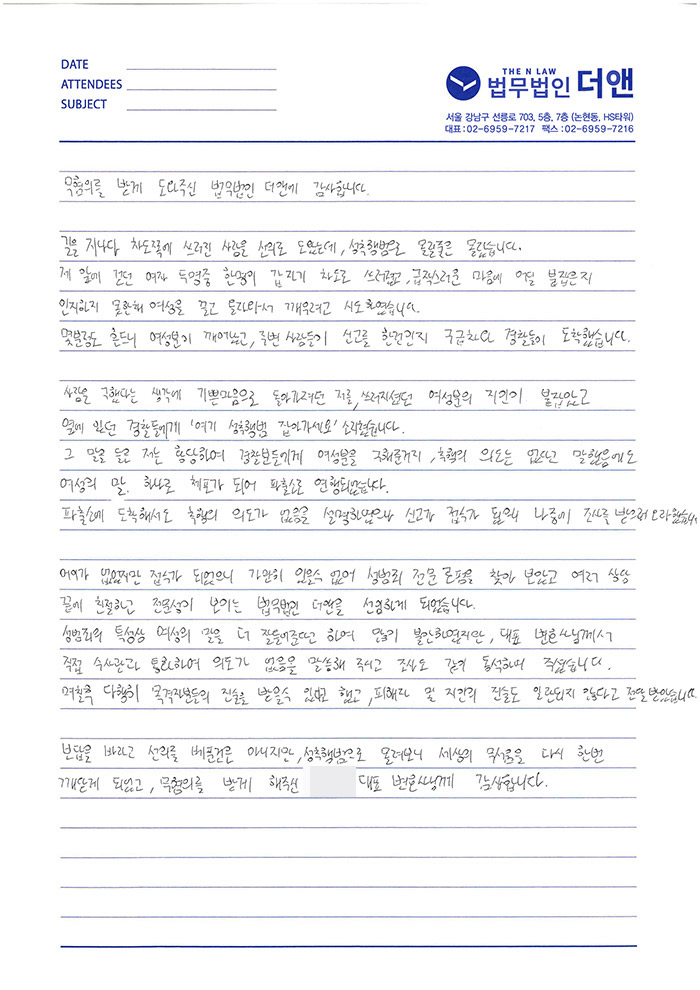 DATE
ATTENDEES
SUBJECT
THE N LAW
법무법인 더앤
서울 강남구 선릉로 703, 5층, 7층 (논현동, HS타워)
대표 : 02-6959-7217 팩스 : 02-6959-7216
무혐의를 받게 도와주신 법무법인 더앤에 감사합니다.
길을 지나다 차도쪽에 쓰러진 사람을 선의로 도왔는데, 성추행범으로 몰릴줄은 몰랐습니다.
제 앞에 걷던 여자 두명중 한명이 갑자기 차도로 쓰러졌고, 급작스러운 마음에 어딜 붙잡은지
인지하지 못한채 여성을 끌고 올라와서 깨우려고 시도하였습니다.
몇분정도 흔드니 여성분이 깨어났고, 주변 사람들이 신고를 한건인지 구급차와 경찰들이 도착했습니다.
사람을 구했다는 생각에 기쁜마음으로 돌아가려던 저를, 쓰러지셨던 여성분의 지인이 붙잡았고
옆에 있던 경찰들에게 '여기 성추행범 잡아가세요' 소리쳤습니다.
그 말을 들은 저는 황당하여 경찰분들에게 여성분을 구해준거지, 추행의 의도는 없다고 말했음에도
여성의 말 하나로 체포가 되어 파출소로 연행되었습니다.
파출소에 도착해서도 추행의 의도가 없음을 설명하였으나 신고가 접수가 됬으니 나중에 조사를 받으러 오라했습니다.
어이가 없었지만 접수가 되었으니 가만히 있을수 없어 성범죄 전문 로펌을 찾아 보았고 여러 상담
끝에 친절하고 전문성이 보이는 법무법인 더앤을 선임하게 되었습니다.
성범죄의 특성상 여성의 말을 더 잘들어준다고 하여 많이 불안하였지만, 대표 변호사님께서
직접 수사관과 통화하여 의도가 없음을 말씀해 주시고 조사도 같이 동석하여 주셨습니다.
며칠후 다행히 목격자분들의 진술을 받을수 있다고 했고, 피해자 및 지인의 진술도 일관되지 않다고 전달 받았습니다
보답을 바라고 선의를 베푼건은 아니지만, 성추행범으로 몰려보니 세상의 무서움을 다시 한번
깨닫게 되었고, 무혐의를 받게 해주신 대표 변호사님께 감사합니다.